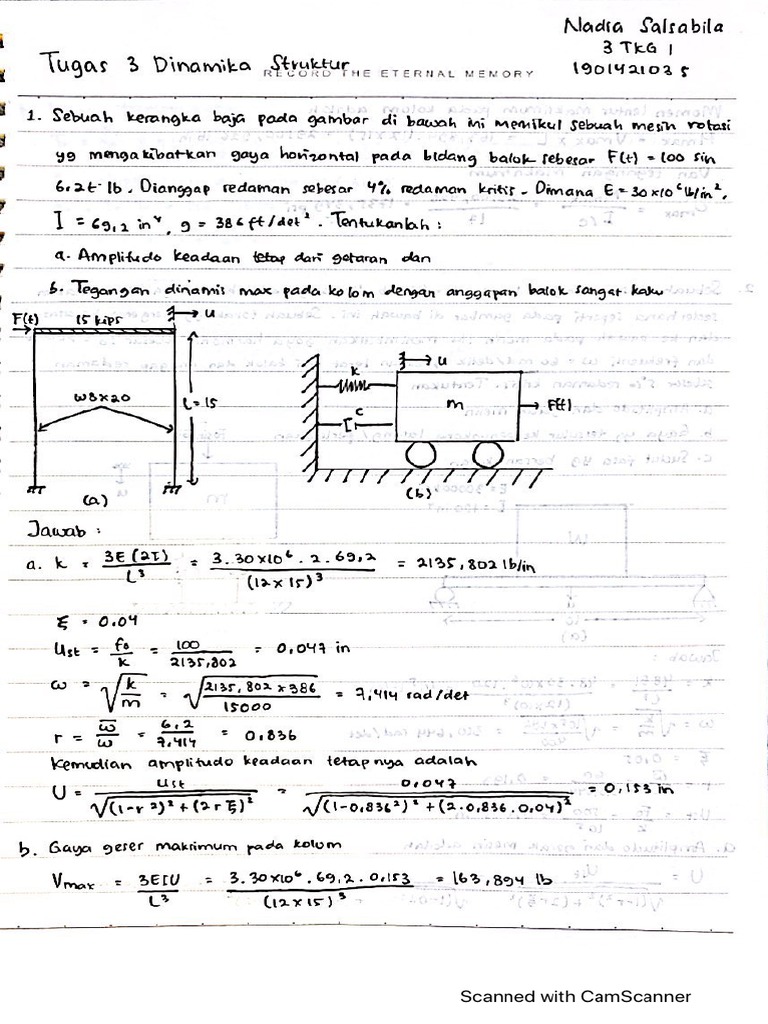 Nadia Salsabila
3 TKG 1
1901421035
Tugas 3 Dinamika Struktur
RECORD THE ETERNAL MEMORY
1. Sebuah kerangka baja pada gambar di bawah ini memikul sebuah mesin rotasi
yg mengakibatkan gaya horizontal pada bidang balok sebesar F(t) = 100 sin
6.2t lb. Dianggap redaman sebesar 4% redaman kritis. Dimana E = 30 x 10⁶ lb/in²,
I = 69,2 in⁴, g = 386 ft/det². Tentukanlah :
a. Amplitudo keadaan tetap dari getaran dan
b. Tegangan dinamis max pada kolom dengan anggapan balok sangat kaku
F(t) 15 kips u
W8x20 L = 15
(a)
k u
c m F(t)
(b)
Jawab :
a. k = 3E(2I) / L³ = 3.30x10⁶.2.69,2 / (12x15)³ = 2135,802 lb/in
ξ = 0.04
Ust = fo / k = 100 / 2135,802 = 0,047 in
ω = √(k / m) = √(2135,802 x 386 / 15000) = 7,414 rad/det
r = ω̅ / ω = 6,2 / 7,414 = 0,836
Kemudian amplitudo keadaan tetapnya adalah
U = Ust / √((1-r²)² + (2rξ)²) = 0,047 / √((1-0,836²)² + (2.0,836.0,04)²) = 0,153 in
b. Gaya geser maksimum pada kolom
Vmax = 3EIU / L³ = 3.30x10⁶.69,2.0,153 / (12x15)³ = 163,894 lb
Scanned with CamScanner